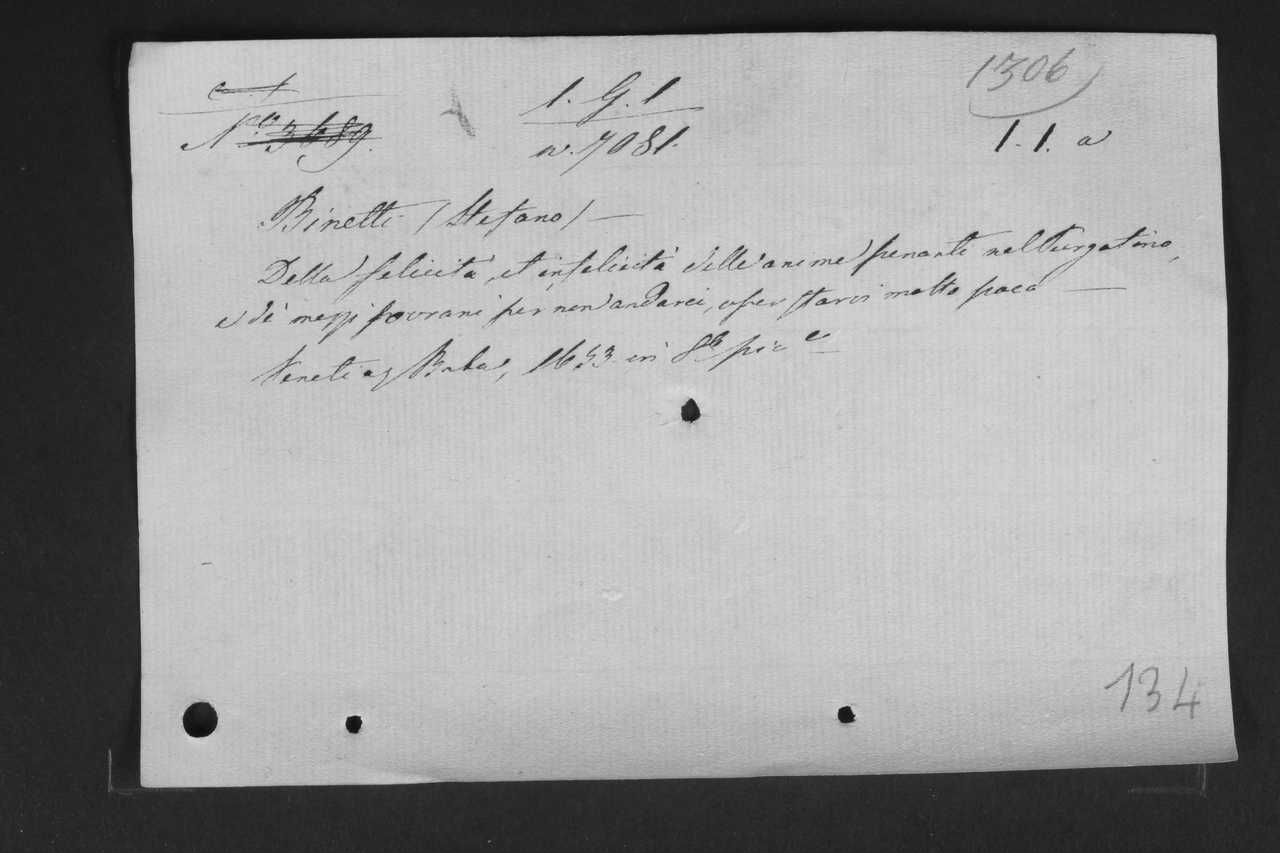 1306
N.ro 3689.
1. G. 1
n. 7081.
1. 1. a
Binetti (Stefano) —
Della felicità, et infelicità dell'anime penanti nel Purgatorio,
e di mezzi sovrani per non andarci, o per starvi molto poco —
Veneti ap Baba, 1653 in 8º pic
134